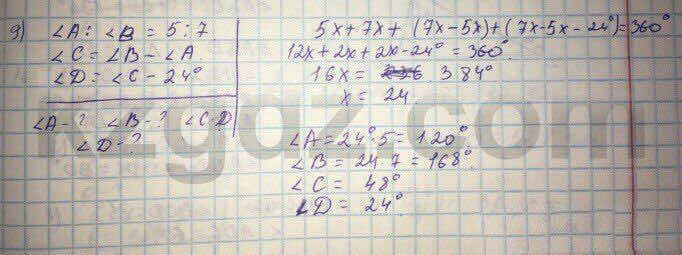 9) ∠A : ∠B = 5 : 7
∠C = ∠B - ∠A
∠D = ∠C - 24°
∠A - ? ∠B - ? ∠C D
∠D - ?
5x + 7x + (7x - 5x) + (7x - 5x - 24°) = 360°
12x + 2x + 2x - 24° = 360°.
16x = 384°
x = 24
∠A = 24° · 5 = 120°
∠B = 24 · 7 = 168°
∠C = 48°
∠D = 24°
kzgdz.com